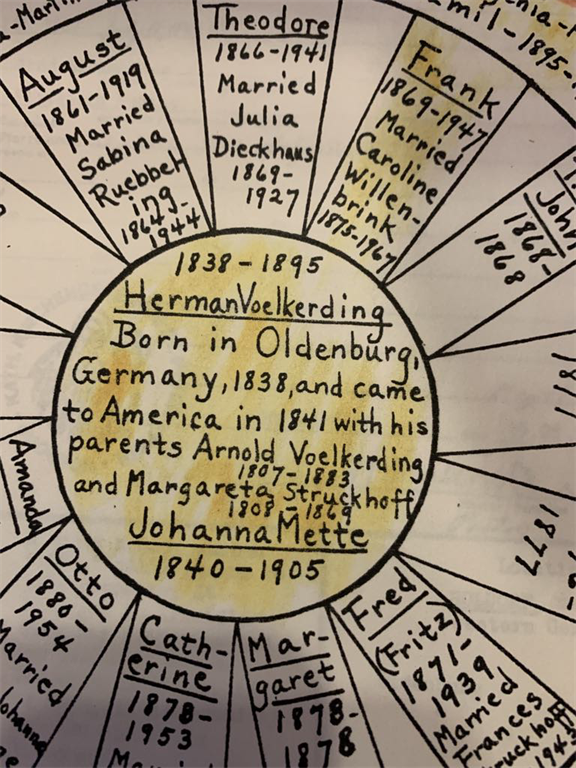 1838-1895
Herman Voelkerding
Born in Oldenburg,
Germany, 1838, and came
to America in 1841 with his
parents Arnold Voelkerding
1807-1883
and Margareta Struckhoff
1808-1869
Johanna Mette
1840-1905
August
1861-1919
Married
Sabina
Ruebbel-
ing
1864-
1944
Theodore
1866-1941
Married
Julia
Dieckhaus
1869-
1927
Frank
1869-1947
Married
Caroline
Willen-
brink
1875-1967
John
1868-
1868
1877
Fred
(Fritz)
1871-
1939
Married
Frances
Struckhoff
Mar-
garet
1878-
1878
Cath-
erine
1878-
1953
Married
Otto
1880-
1954
Married
Johanna
Amanda
-1895-